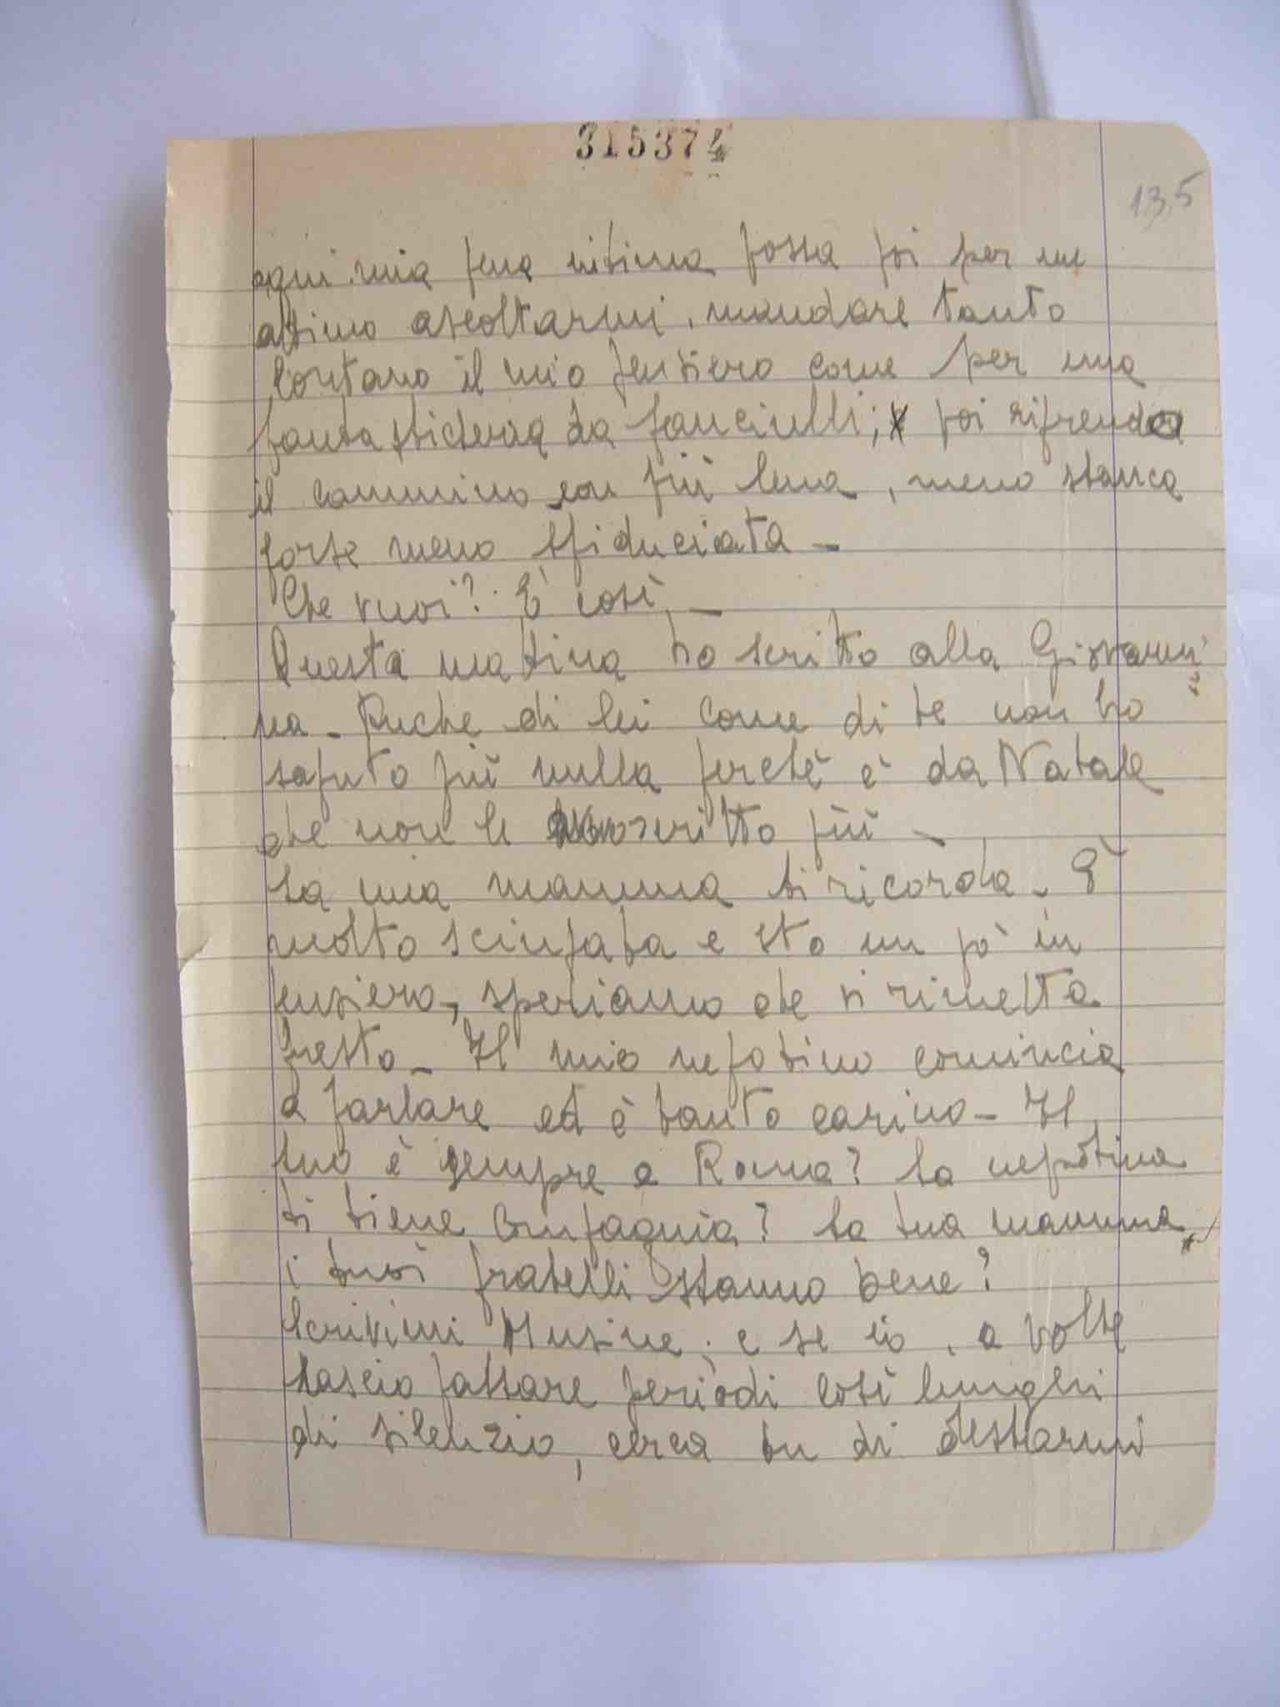 315374
135
ogni mia pena intima possa poi per un
attimo ascoltarmi, mandare tanto
lontano il mio pensiero come per una
fantasticheria da fanciulli; poi riprendo
il cammino con più lena, meno stanca
forse meno sfiduciata -
Che vuoi? È così -
Questa mattina ho scritto alla Giovanni
na - Anche di lei come di te non ho
saputo più nulla perchè è da Natale
che non le scritto più -
La mia mamma ti ricorda - È
molto sciupata e sto un pò in
pensiero, speriamo che si rimetta
presto - Il mio nepotino comincia
a parlare ed è tanto carino - Il
tuo è sempre a Roma? La nepotina
ti tiene compagnia? La tua mamma,
i tuoi fratelli stanno bene?
Scrivimi ; e se io, a volte
lascio passare periodi così lunghi
di silenzio, cerca tu di destarmi